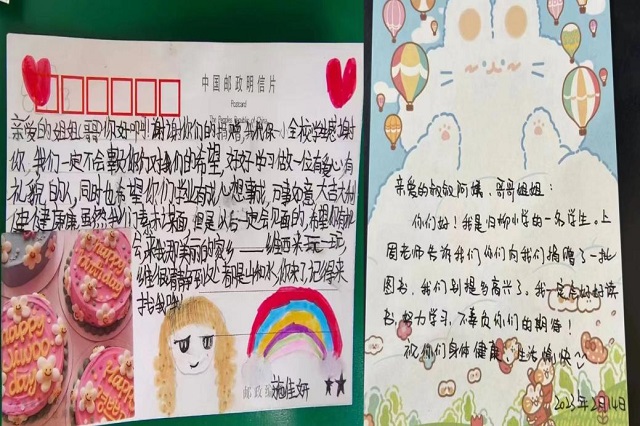 中国邮政明信片
Postcard
The People's Republic of China
亲爱的姐姐(哥)你好啊!谢谢你们的捐赠,我代表一小全校学生感谢
你,我们一定不会辜负你们对我们的希望,好好学习做一位有爱心有
礼貌的人,同时也希望你们学业有成心想事成,万事如意,大吉大利
健健康康虽然我们素未谋面,但是以后一定会见面的,希望你有机
会来我那美丽的家乡——维西来玩一玩,
维很清静到处都是山和水,你来了记得来
找我哦!
施佳妍
邮政编
亲爱的叔叔阿姨、哥哥姐姐:
你们好!我是白柳小学的一名学生。上
周老师告诉我们你们向我们捐赠了一批
图书,我们别提多高兴了。我一定会好好读
书,努力学习,不辜负你们的期待!
祝你们身体健康,生活愉快~
2023年2月14日
HAPPY